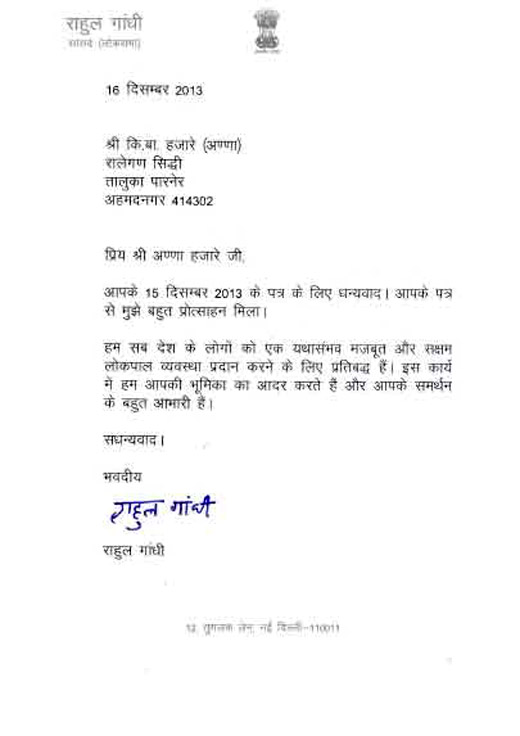 राहुल गांधी
सांसद (लोकसभा)
16 दिसम्बर 2013
श्री कि.बा. हजारे (अण्णा)
रालेगण सिद्धी
तालुका पारनेर
अहमदनगर 414302
प्रिय श्री अण्णा हजारे जी,
आपके 15 दिसम्बर 2013 के पत्र के लिए धन्यवाद। आपके पत्र
से मुझे बहुत प्रोत्साहन मिला।
हम सब देश के लोगों को एक यथासंभव मजबूत और सक्षम
लोकपाल व्यवस्था प्रदान करने के लिए प्रतिबद्ध हैं। इस कार्य
में हम आपकी भूमिका का आदर करते हैं और आपके समर्थन
के बहुत आभारी हैं।
सधन्यवाद।
भवदीय
राहुल गांधी
राहुल गांधी
12, तुगलक लेन, नई दिल्ली-110011